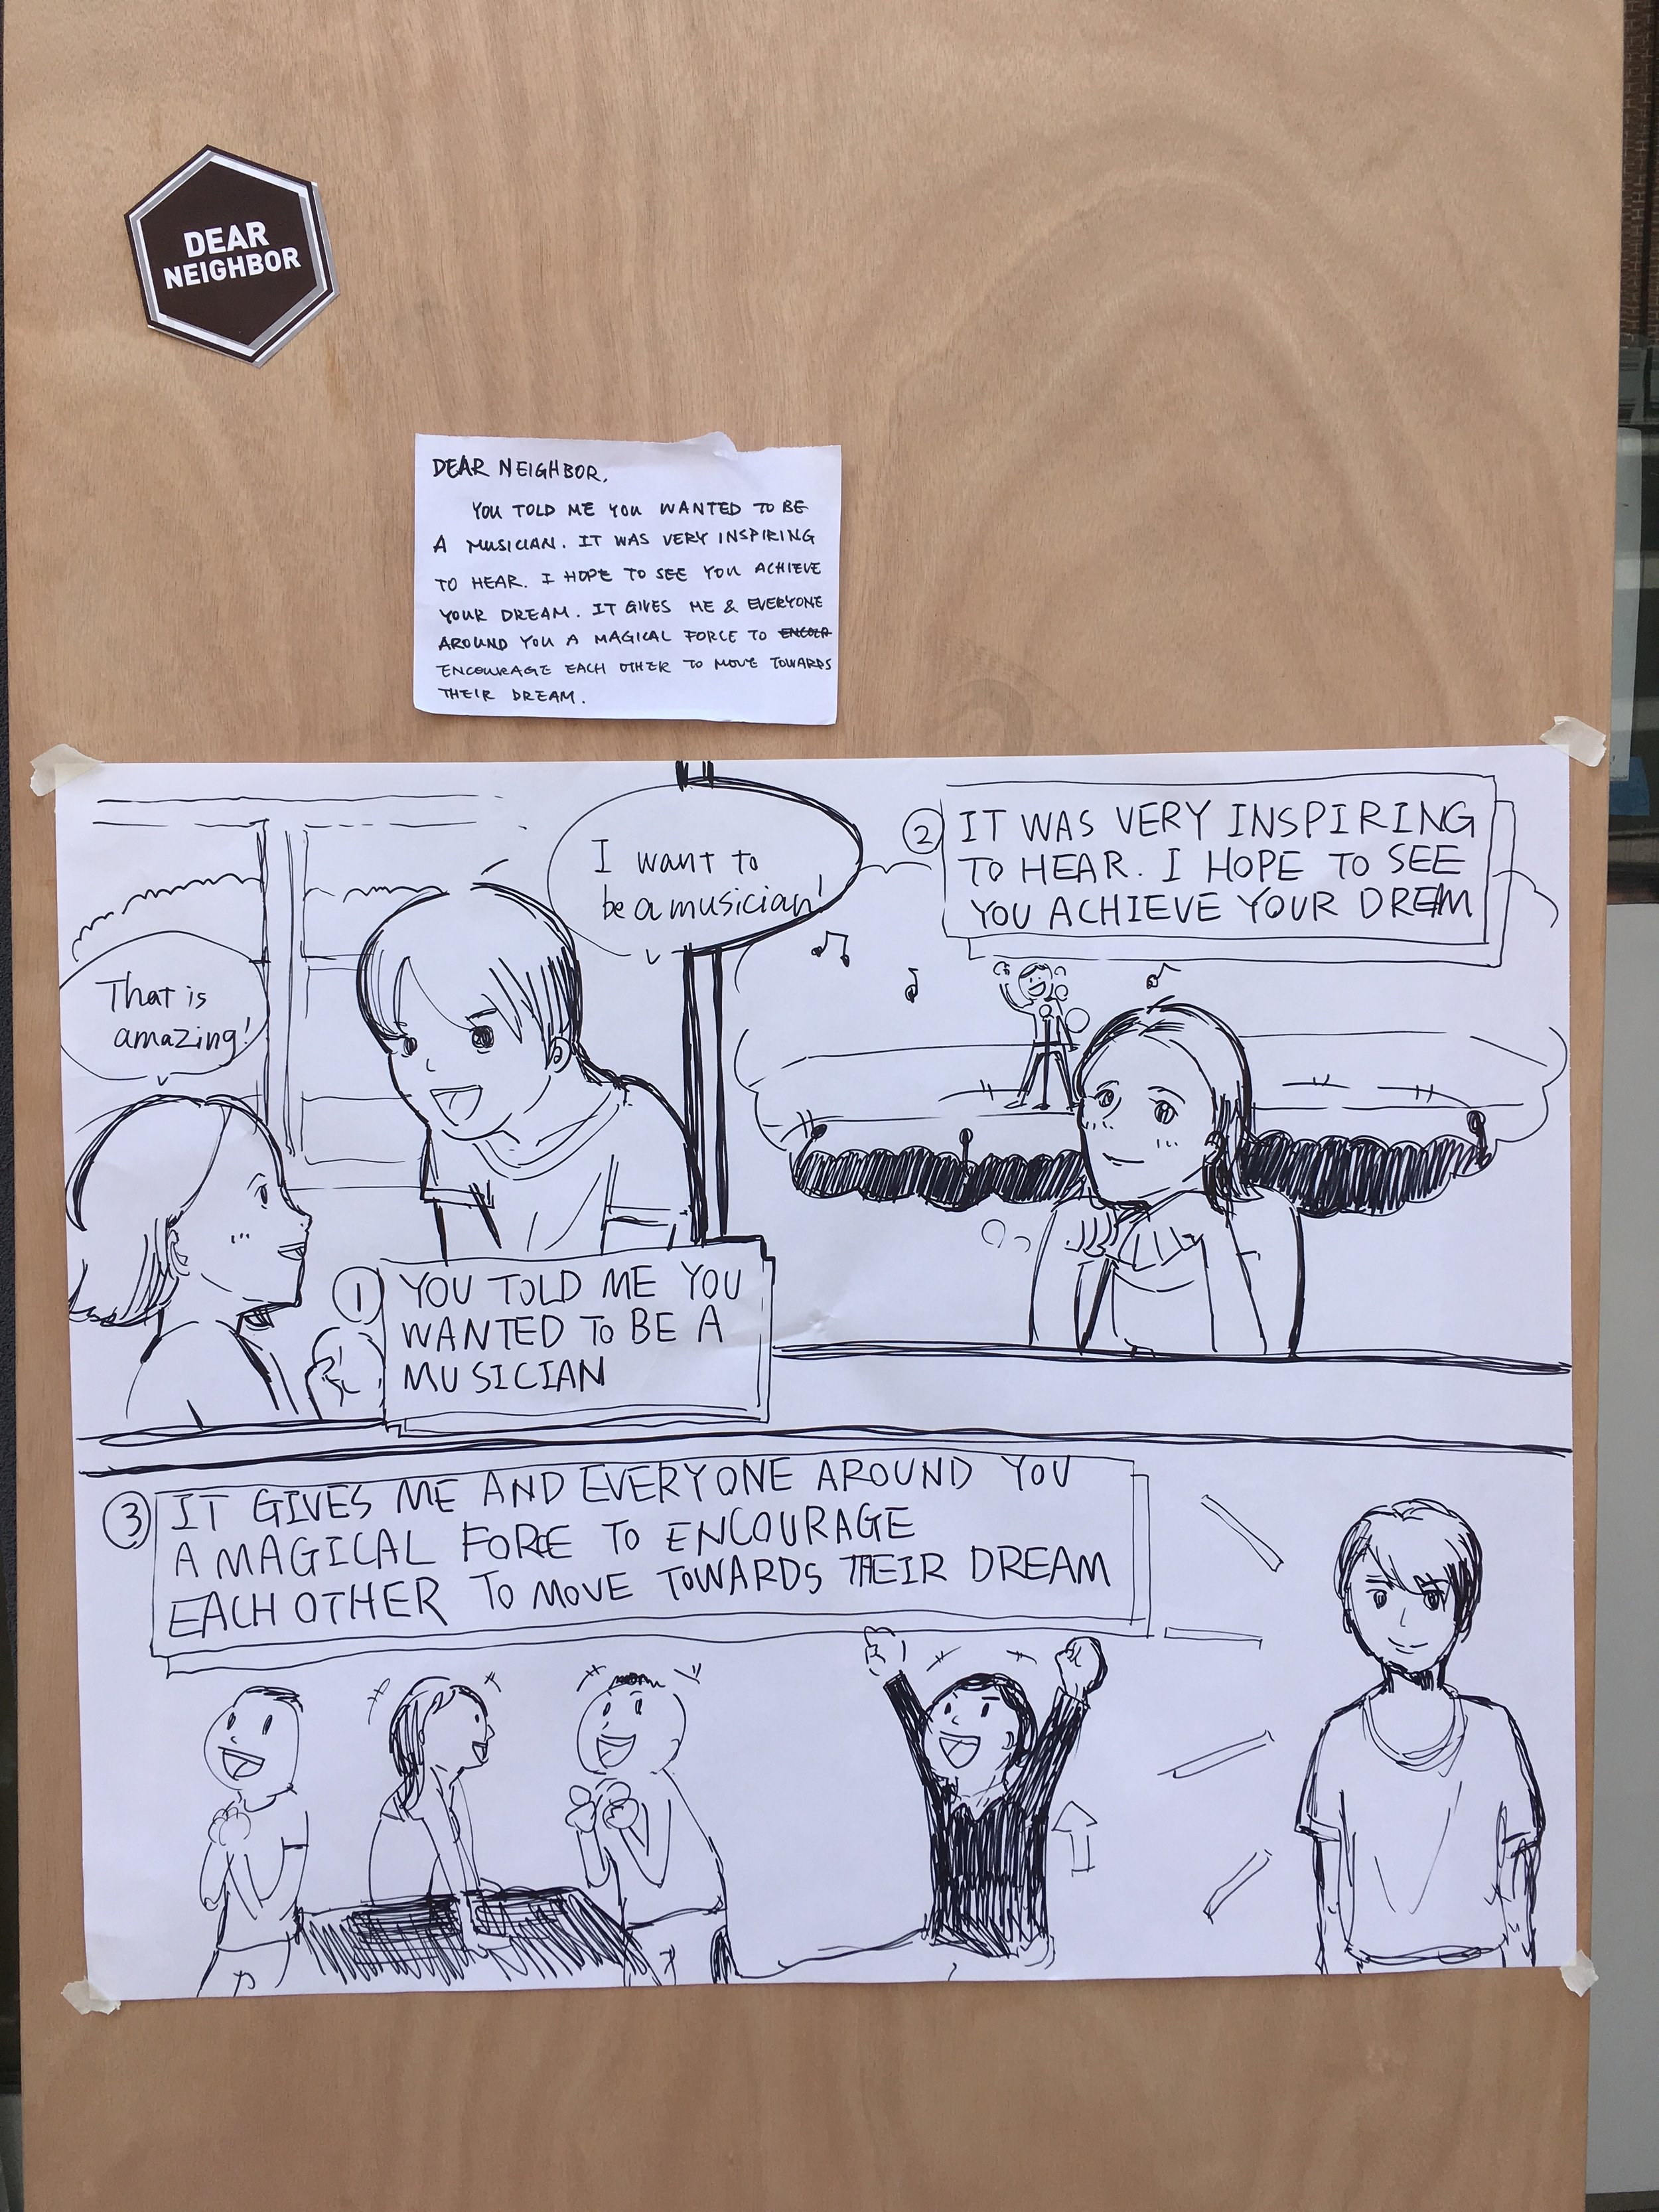 DEAR
NEIGHBOR
DEAR NEIGHBOR,
YOU TOLD ME YOU WANTED TO BE
A MUSICIAN. IT WAS VERY INSPIRING
TO HEAR. I HOPE TO SEE YOU ACHIEVE
YOUR DREAM. IT GIVES ME & EVERYONE
AROUND YOU A MAGICAL FORCE TO
ENCOURAGE EACH OTHER TO MOVE TOWARDS
THEIR DREAM.
That is
amazing!
I want to
be a musician!
① YOU TOLD ME YOU
WANTED TO BE A
MUSICIAN
② IT WAS VERY INSPIRING
TO HEAR. I HOPE TO SEE
YOU ACHIEVE YOUR DREAM
③ IT GIVES ME AND EVERYONE AROUND YOU
A MAGICAL FORCE TO ENCOURAGE
EACH OTHER TO MOVE TOWARDS THEIR DREAM